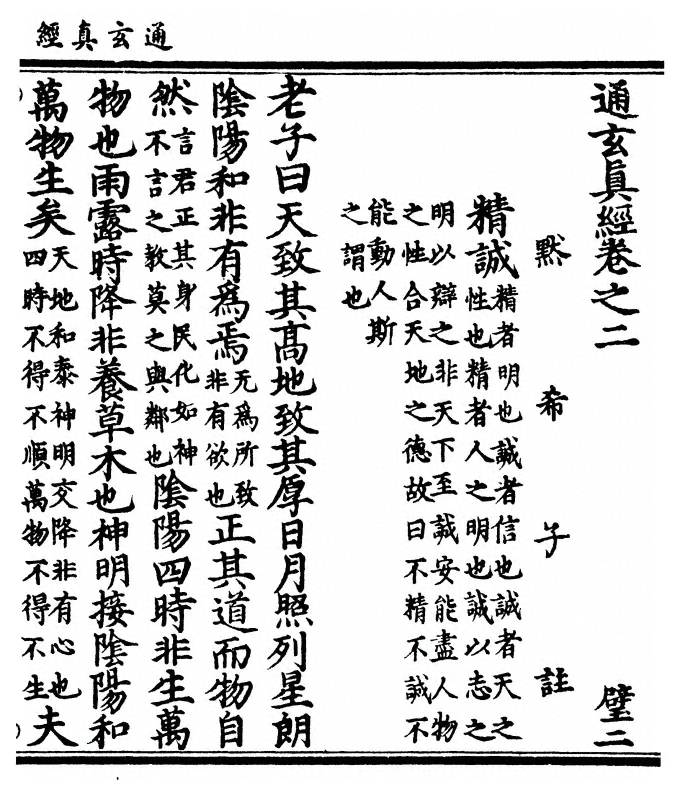 通玄真經
通玄眞經卷之二 璧二
默希子註
精誠 精者明也誠者信也誠者天之
性也精者人之明也誠以志之
明以辯之非天下至誠安能盡人物
之性合天地之德故曰不精不誠不
能動人斯
之謂也
老子曰天致其高地致其厚日月照列星朗
陰陽和非有爲焉无爲所致非有欲也正其道而物自
然言君正其身民化如神不言之教莫之與鄰也陰陽四時非生萬
物也雨露時降非養草木也神明接陰陽和
萬物生矣天地和泰神明交降非有心也四時不得不順萬物不得不生夫